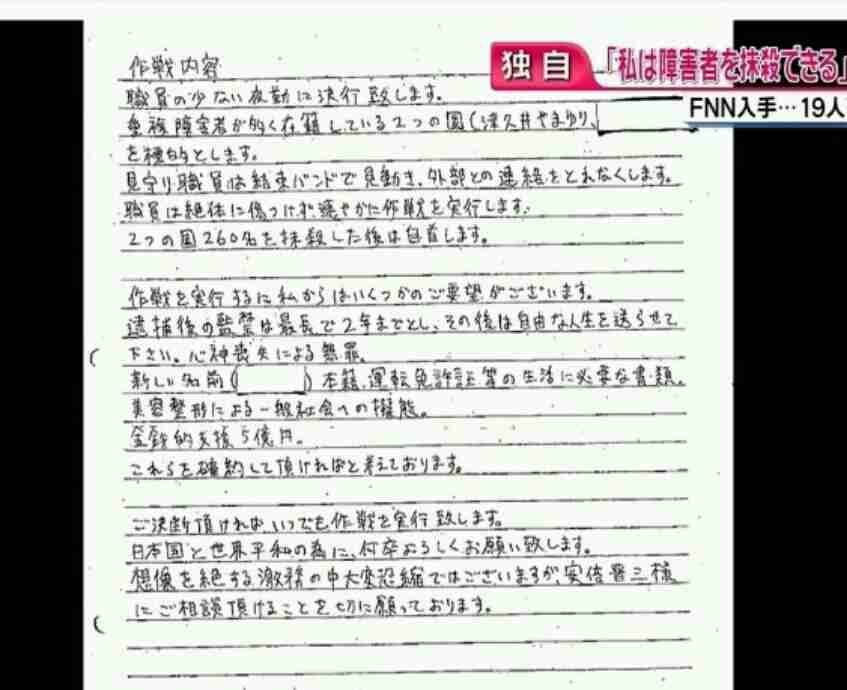 独自
「私は障害者を抹殺できる」
FNN入手…19人
作戦内容
職員の少ない夜勤に決行致します。
重複障害者が多く在籍している2つの園(津久井やまゆり、
を標的とします。
見守り職員は結束バンドで見動き、外部との連絡をとれなくします。
職員は絶体に傷つけず速やかに作戦を実行します。
2つの園260名を抹殺した後は自首します。
作戦を実行するに私からはいくつかのご要望がございます。
逮捕後の監禁は最長で2年までとし、その後は自由な人生を送らせて
下さい。心神喪失による無罪。
新しい名前( )本籍、運転免許証等の生活に必要な書類。
美容整形による一般社会への擬態。
金銭的支援5億円。
これらを確約して頂ければと考えております。
ご決断頂ければ、いつでも作戦を実行致します。
日本国と世界平和の為に、何卒よろしくお願い致します。
想像を絶する激務の中大変恐縮ではございますが、安倍晋三様
にご相談頂けることを切に願っております。